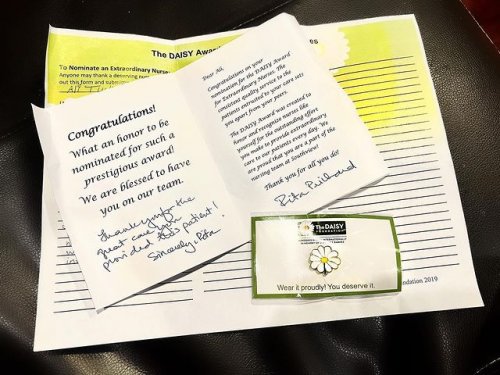 The DAISY Awar
es
To Nominate an Extraordinary Nurse
Anyone may thank a deserving nur
out this form and submit
Congratulations!
What an honor to be
nominated for such a
prestigious award!
We are blessed to have
you on our team.
Thank you for the
great care you
provided this patient!
Sincerely, Rita
Dear Ali,
Congratulations on your
nomination for the DAISY Award
for Extraordinary Nurses. The
consistent quality service to the
patients entrusted to your care sets
you apart from your peers.
The DAISY Award was created to
honor and recognize nurses like
yourself for the outstanding effort
you make to provide extraordinary
care to our patients every day. We
are proud that you are a part of the
nursing team at Southview!
Thank you for all you do!
Rita
The DAISY
FOUNDATION
Wear it proudly! You deserve it.
undation 2019